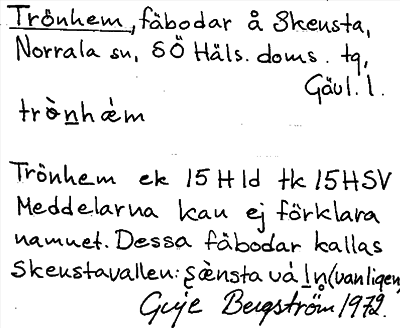 Trönhem, fäbodar å Skensta,
Norrala sn, SÖ Häls. doms. tg,
Gävl. l.
trö̀nhæ̀m
Trönhem ek 15 H ld tk 15HSV
Meddelarna kan ej förklara
namnet. Dessa fäbodar kallas
Skenstavallen: sæ̀nsta vá ln (vanligen)
Bergström 1972.